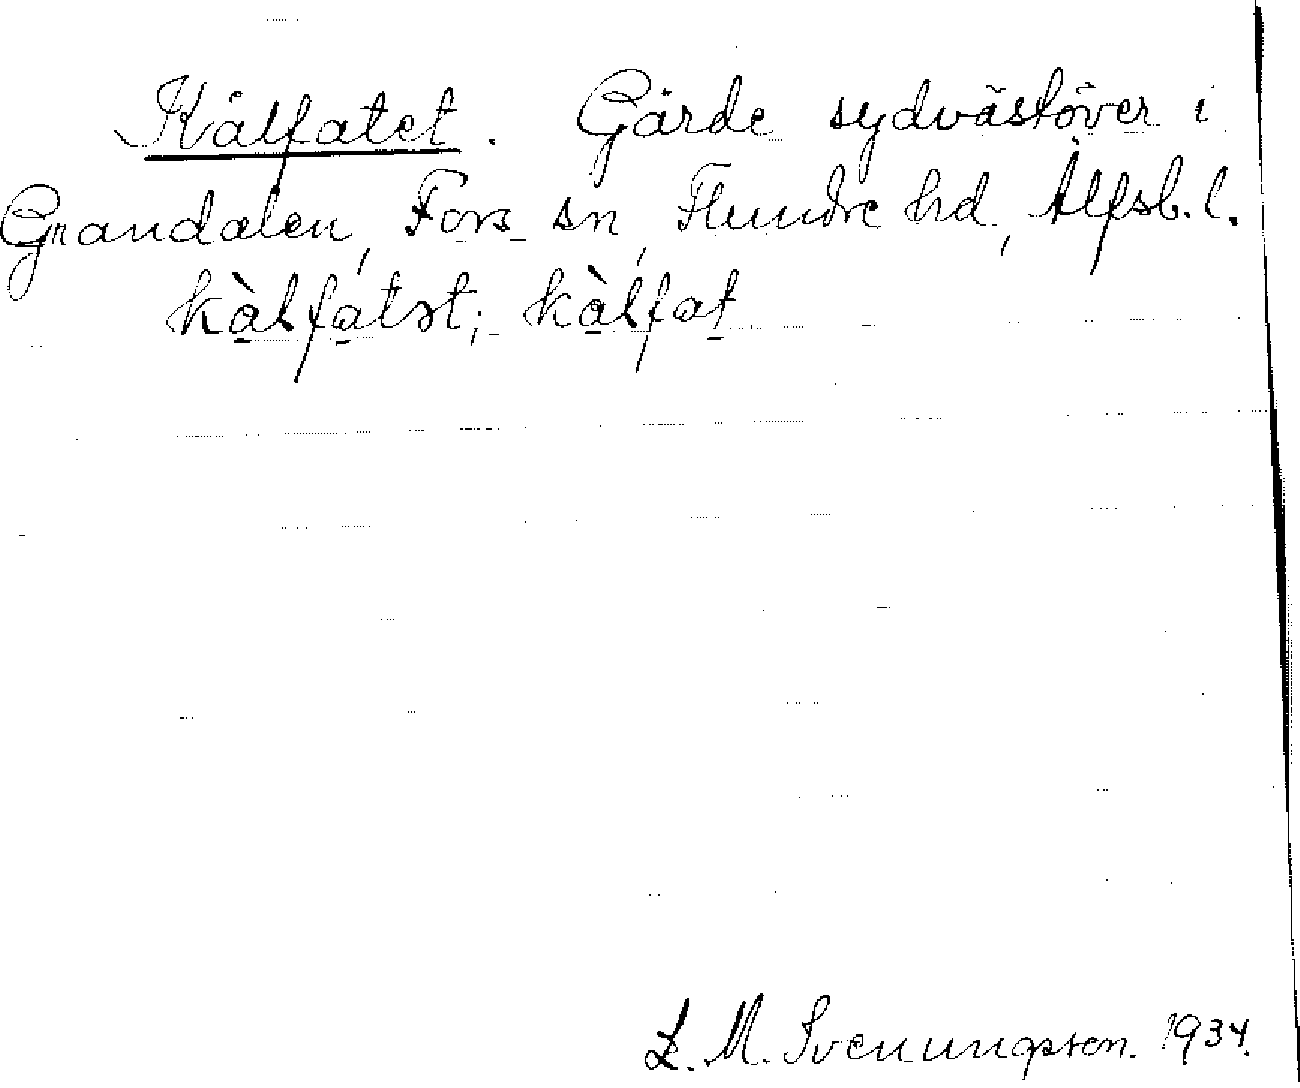 Kålfatet. Gärde sydvästöver i
Grandalen, Fors sn, Flundre hd, Älfsb. l.
kàlfatət; kàlfat
L. M. Svenungsson. 1934.